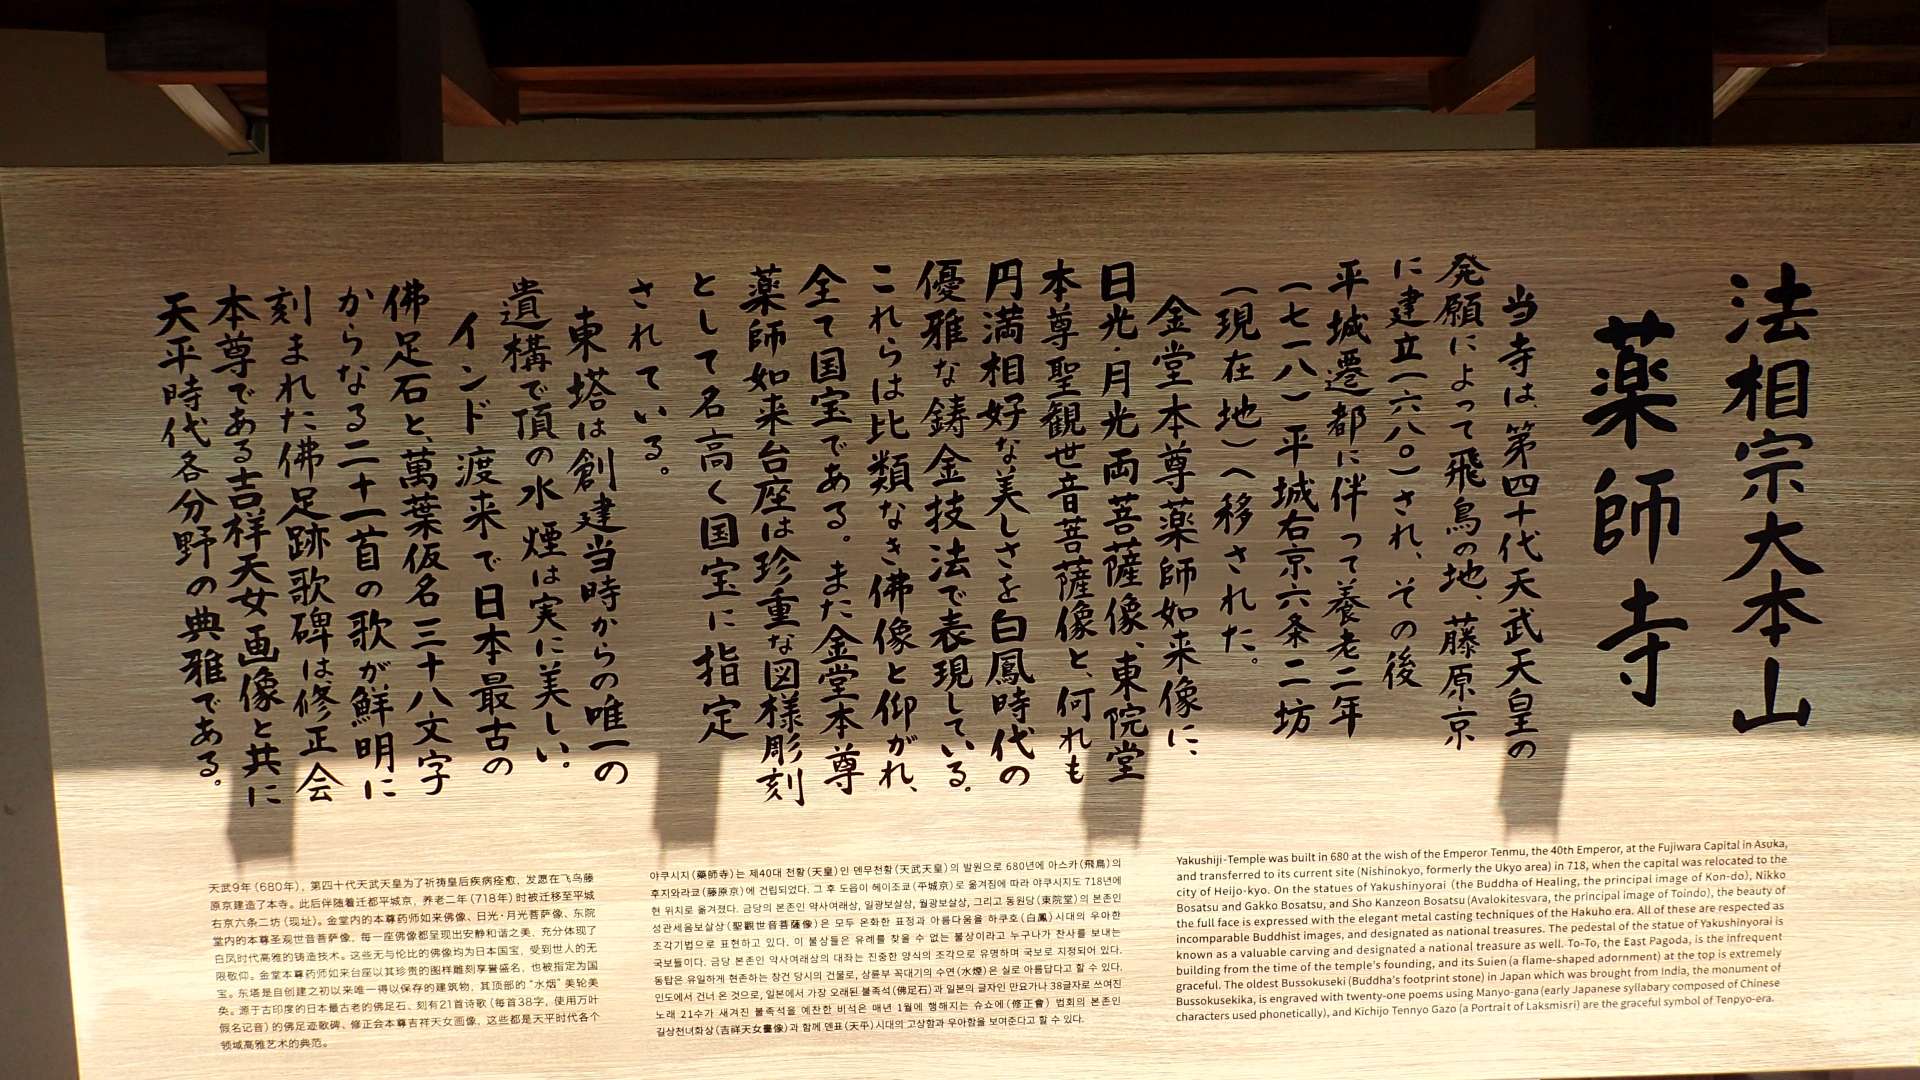 法相宗大本山
薬師寺
当寺は、第四十代天武天皇の
発願によって飛鳥の地、藤原京
に建立(六八〇)され、その後
平城遷都に伴って養老二年
(七一八)平城右京六条二坊
(現在地)へ移された。
金堂本尊薬師如来像に、
日光・月光両菩薩像、東院堂
本尊聖観世音菩薩像と、何れも
円満相好な美しさを白鳳時代の
優雅な鋳金技法で表現している。
これらは比類なき佛像と仰がれ、
全て国宝である。また金堂本尊
薬師如来台座は珍重な図様彫刻
として名高く国宝に指定
されている。
東塔は創建当時からの唯一の
遺構で頂の水煙は実に美しい。
インド渡来で日本最古の
佛足石と、萬葉仮名三十八文字
からなる二十一首の歌が鮮明に
刻まれた佛足跡歌碑は、修正会
本尊である吉祥天女画像と共に
天平時代各分野の典雅である。
天武9年（680年），第四十代天武天皇为了祈祷皇后疾病痊愈，发愿在飞鸟藤
原京建造了本寺。此后伴随着迁都平城京，养老二年（718年）时被迁移至平城
右京六条二坊（现址）。金堂内的本尊药师如来佛像、日光・月光菩萨像、东院
堂内的本尊圣观世音菩萨像，每一座佛像都呈现出安静和谐之美，充分体现了
白凤时代高雅的铸造技术。这些无与伦比的佛像均为日本国宝，受到世人的无
限敬仰。金堂本尊药师如来台座以其珍贵的图样雕刻享誉盛名，也被指定为国
宝。东塔是自创建之初以来唯一得以保存的建筑物，其顶部的“水烟”美轮美
奂。源于古印度的日本最古老的佛足石、刻有21首诗歌（每首38字，使用万叶
假名记音）的佛足迹歌碑、修正会本尊吉祥天女画像，这些都是天平时代各个
领域高雅艺术的典范。
야쿠시지(藥師寺)는 제40대 천황(天皇)인 덴무천황(天武天皇)의 발원으로 680년에 아스카(飛鳥)의
후지와라쿄(藤原京)에 건립되었다. 그 후 도읍이 헤이조쿄(平城京)로 옮겨짐에 따라 야쿠시지도 718년에
현 위치로 옮겨졌다. 금당의 본존인 약사여래상, 일광보살상, 월광보살상, 그리고 동원당(東院堂)의 본존인
성관세음보살상(聖觀世音菩薩像)은 모두 온화한 표정과 아름다움을 하쿠호(白鳳)시대의 우아한
조각기법으로 표현하고 있다. 이 불상들은 유례를 찾을 수 없는 불상이라고 누구나가 찬사를 보내는
국보들이다. 금당 본존인 약사여래상의 대좌는 진중한 양식의 조각으로 유명하며 국보로 지정되어 있다.
동탑은 유일하게 현존하는 창건 당시의 건물로, 상륜부 꼭대기의 수연(水煙)은 실로 아름답다고 할 수 있다.
인도에서 건너 온 것으로, 일본에서 가장 오래된 불족석(佛足石)과 일본의 글자인 만요가나 38글자로 쓰여진
노래 21수가 새겨진 불족석을 예찬한 비석은 매년 1월에 행해지는 슈쇼에(修正會) 법회의 본존인
길상천녀화상(吉祥天女畫像)과 함께 덴표(天平)시대의 고상함과 우아함을 보여준다고 할 수 있다.
Yakushiji-Temple was built in 680 at the wish of the Emperor Tenmu, the 40th Emperor, at the Fujiwara Capital in Asuka,
and transferred to its current site (Nishinokyo, formerly the Ukyo area) in 718, when the capital was relocated to the
city of Heijo-kyo. On the statues of Yakushinyorai (the Buddha of Healing, the principal image of Kon-do), Nikko
Bosatsu and Gakko Bosatsu, and Sho Kanzeon Bosatsu (Avalokitesvara, the principal image of Toindo), the beauty of
the full face is expressed with the elegant metal casting techniques of the Hakuho era. All of these are respected as
incomparable Buddhist images, and designated as national treasures. The pedestal of the statue of Yakushinyorai is
known as a valuable carving and designated a national treasure as well. To-To, the East Pagoda, is the infrequent
building from the time of the temple's founding, and its Suien (a flame-shaped adornment) at the top is extremely
graceful. The oldest Bussokuseki (Buddha's footprint stone) in Japan which was brought from India, the monument of
Bussokusekika, is engraved with twenty-one poems using Manyo-gana (early Japanese syllabary composed of Chinese
characters used phonetically), and Kichijo Tennyo Gazo (a Portrait of Laksmisri) are the graceful symbol of Tenpyo-era.